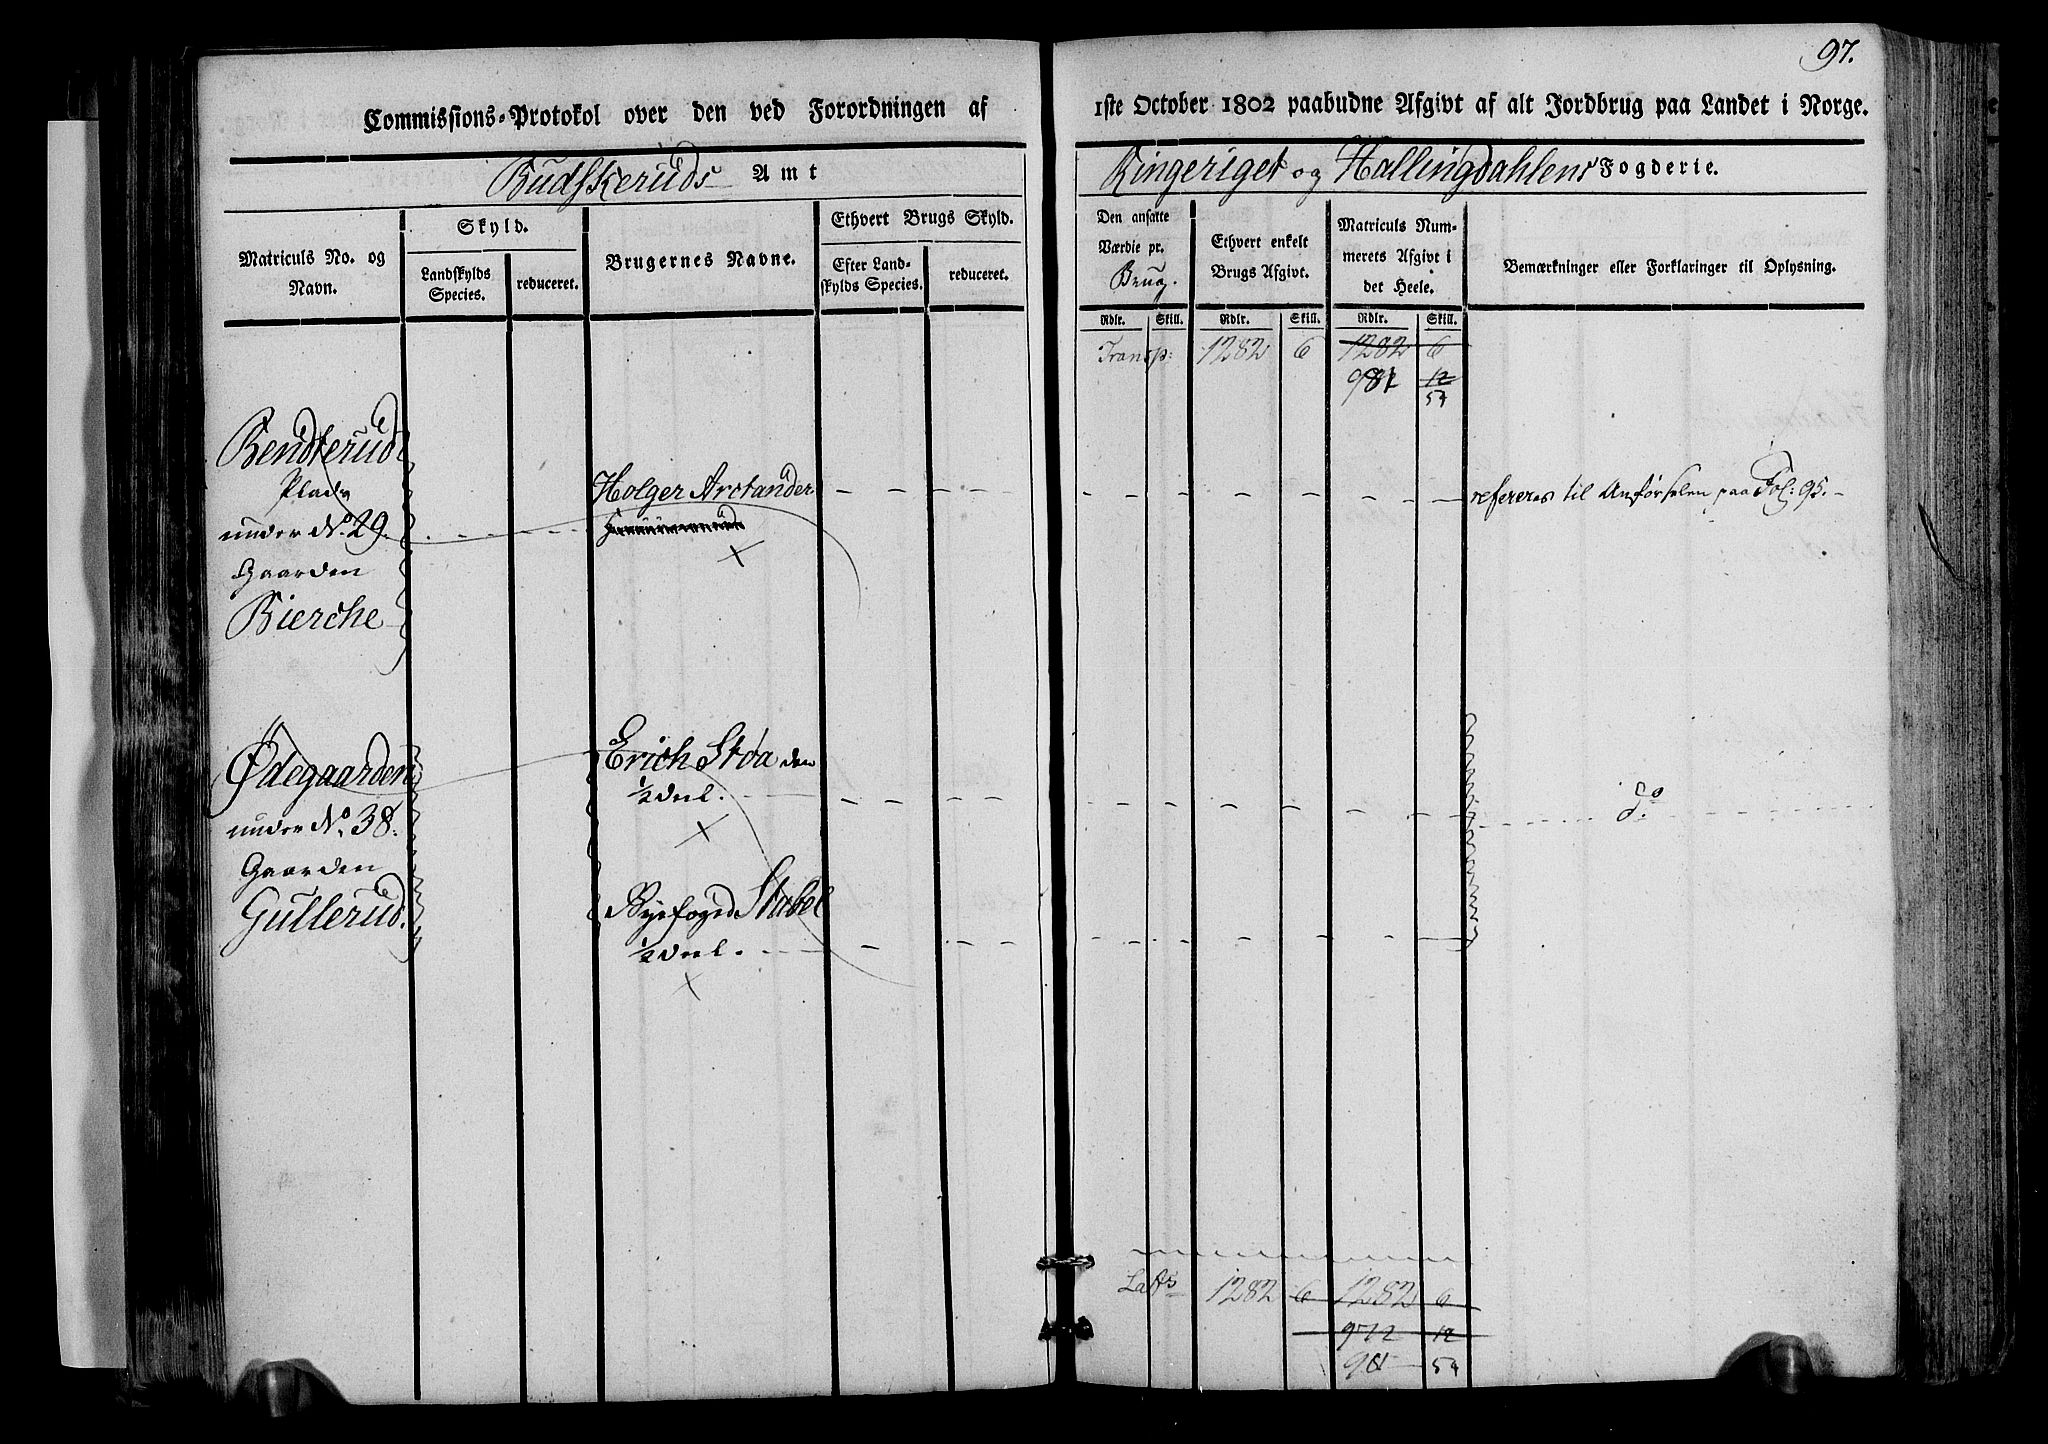 97.
Commissions-Protokol over den ved Forordningen af 1ste October 1802 paabudne Afgivt af alt Jordbrug paa Landet i Norge.
Budskeruds Amt
Ringeriget og Hallingdahlens Fogderie.
Matriculs No. og Navn.
Skyld.
Landskylds Species.
reduceret.
Brugernes Navne.
Ethvert Brugs Skyld.
Efter Landskylds Species.
reduceret.
Den ansatte Værdie pr. Brug.
Ethvert enkelt Brugs Afgivt.
Matriculs Nummerets Afgivt i det Heele.
Bemærkninger eller Forklaringer til Oplysning.
Rdlr. Skill. Rdlr. Skill. Rdlr. Skill.
Transp: 1282 6 1282 6
981 12
54
Bendterud
Plads
under No. 29.
Gaarden
Bierche
Holger Arctander
refereres til Anførselen paa Fol: 95.
Ødegaarden
under No. 38.
Gaarden
Gullerud.
Erich Støa den
1/2 deel.
do
Byefoged Stabel
1/2 deel.
Lats 1282 6 1282 6
972 12
54